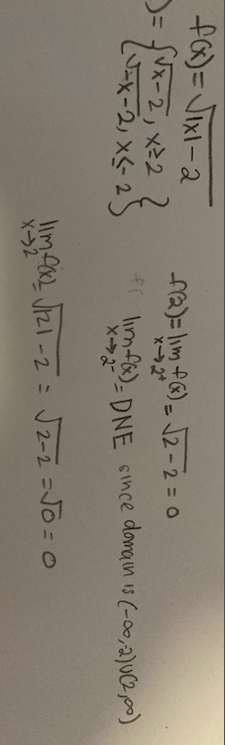 f(x) = √|x| - 2
) = { √x-2, x ≥ 2
√-x-2, x ≤ -2 }
f(2) = lim x→2⁺ f(x) = √2-2 = 0
f(
lim x→2⁻ f(x) = DNE since domain is (-∞,2)∪(2,∞)
lim x→2 f(x) = √|2| - 2 = √2-2 = √0 = 0